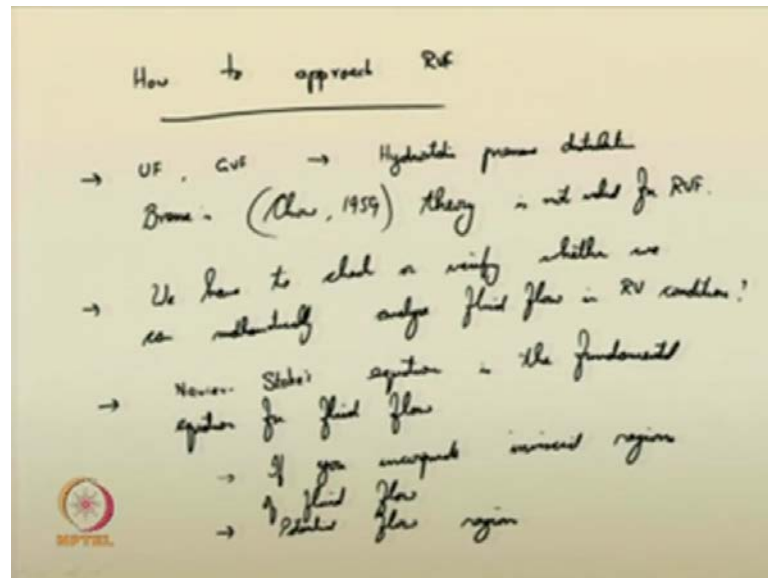 How to approach RVF
→ UF, GVF → Hydrostatic pressure distribution
(Chow, 1959) theory is not valid for RVF.
→ We have to check or verify whether we
can mathematically analyse fluid flow in RV condition?
→ Navier Stoke's equation is the fundamental
equation for fluid flow
→ If you incorporate inviscid region
of fluid flow
→ Potential flow region
NPTEL